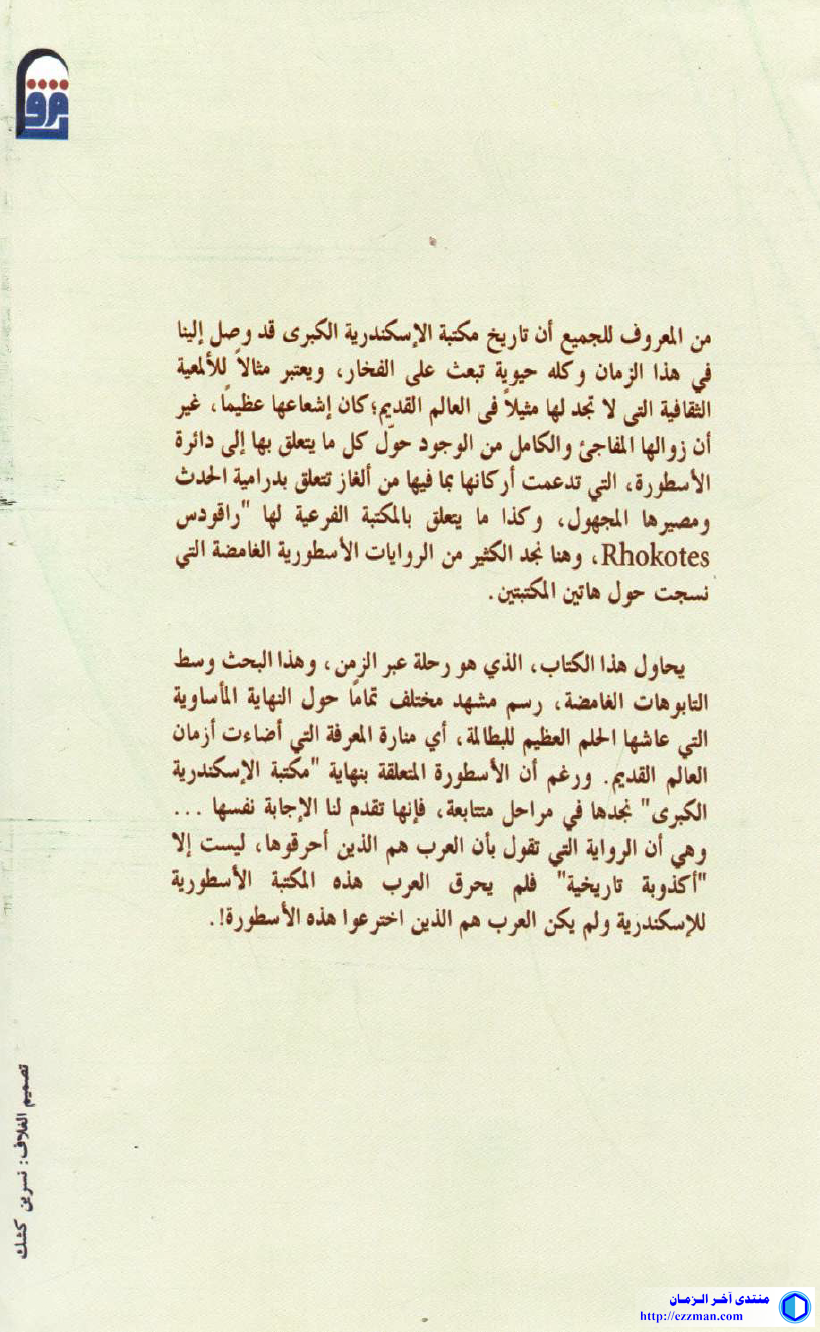 من المعروف للجميع أن تاريخ مكتبة الإسكندرية الكبرى قد وصل إلينا
في هذا الزمان وكله حيوية تبعث على الفخار، ويعتبر مثالاً للألمعية
الثقافية التى لا تجد لها مثيلاً فى العالم القديم؛ كان إشعاعها عظيمًا، غير
أن زوالها المفاجئ والكامل من الوجود حوّل كل ما يتعلق بها إلى دائرة
الأسطورة، التي تدعمت أركانها بما فيها من ألغاز تتعلق بدرامية الحدث
ومصيرها المجهول، وكذا ما يتعلق بالمكتبة الفرعية لها "راقودس
Rhokotes، وهنا نجد الكثير من الروايات الأسطورية الغامضة التي
نسجت حول هاتين المكتبتين.
يحاول هذا الكتاب، الذي هو رحلة عبر الزمن، وهذا البحث وسط
التابوهات الغامضة، رسم مشهد مختلف تمامًا حول النهاية المأساوية
التي عاشها الحلم العظيم للبطالمة، أي منارة المعرفة التي أضاءت أزمان
العالم القديم. ورغم أن الأسطورة المتعلقة بنهاية "مكتبة الإسكندرية
الكبرى" نجدها في مراحل متتابعة، فإنها تقدم لنا الإجابة نفسها ...
وهي أن الرواية التي تقول بأن العرب هم الذين أحرقوها، ليست إلا
"أكذوبة تاريخية" فلم يحرق العرب هذه المكتبة الأسطورية
للإسكندرية ولم يكن العرب هم الذين اخترعوا هذه الأسطورة!.
تصميم الغلاف: نسرين كشك
منتدى آخر الزمان
http://ezzman.com